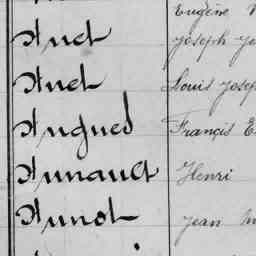 Eugène
Huet Joseph
Huet Louis Josep
Hugues Françis E
Hunault Henri
Hunot Jean M